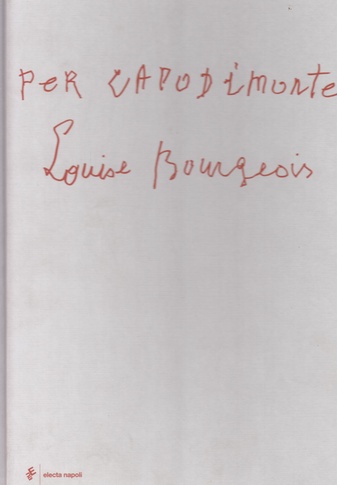 PER CAPODIMONTE
Louise Bourgeois
electa napoli